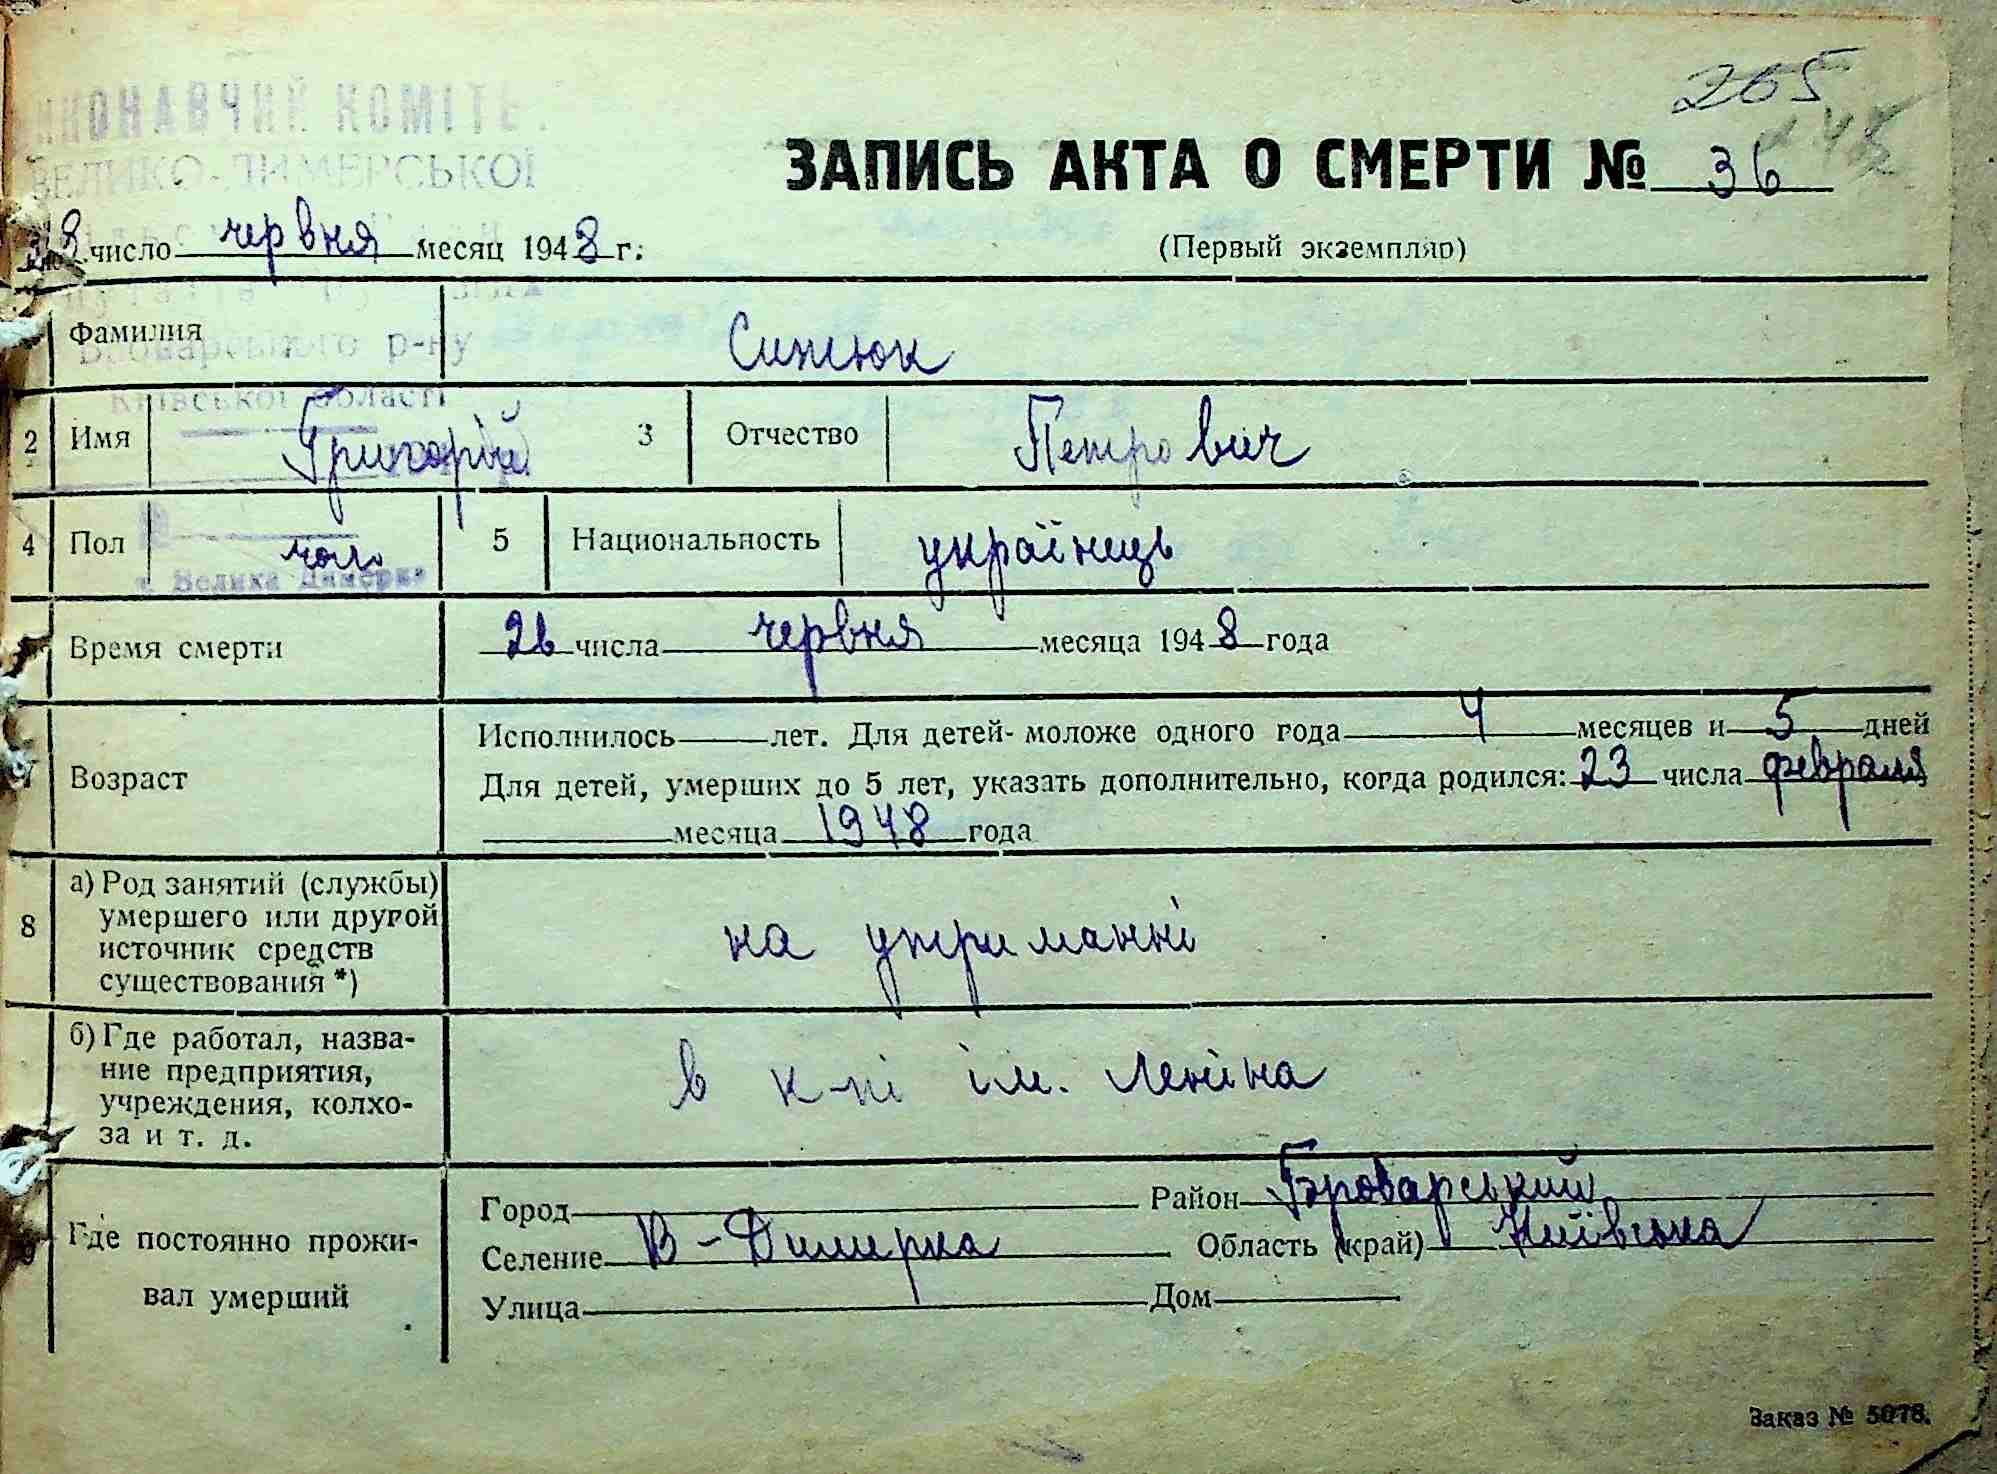 265
ВЕЛИКО-ДИМЕРСЬКОЇ
ЗАПИСЬ АКТА О СМЕРТИ № 36
число червня месяц 1948 г.
(Первый экземпляр)
Фамилия
Броварського р-ну
Київської області
2 Имя Григорій 3 Отчество Петрович
4 Пол чол. 5 Национальность українець
с. Велика Димерка
Время смерти 26 числа червня месяца 1948 года
Исполнилось лет. Для детей моложе одного года 4 месяцев и 5 дней
7 Возраст Для детей, умерших до 5 лет, указать дополнительно, когда родился: 23 числа февраля
месяца 1948 года
8 а) Род занятий (службы)
умершего или другой
источник средств
существования *)
на утриманні
б) Где работал, назва-
ние предприятия,
учреждения, колхо-
за и т. д.
в к-пі ім. Леніна
Где постоянно прожи-
вал умерший
Город Район Броварський
Селение В-Димерка Область (край) Київська
Улица Дом
Заказ № 5078.